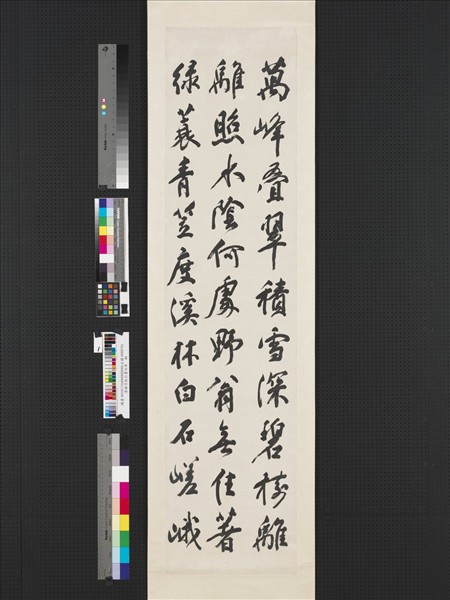 萬峰叠翠積雪深碧樹離
離照水陰何處野翁無住著
綠蓑青笠度溪林白石嵯峨